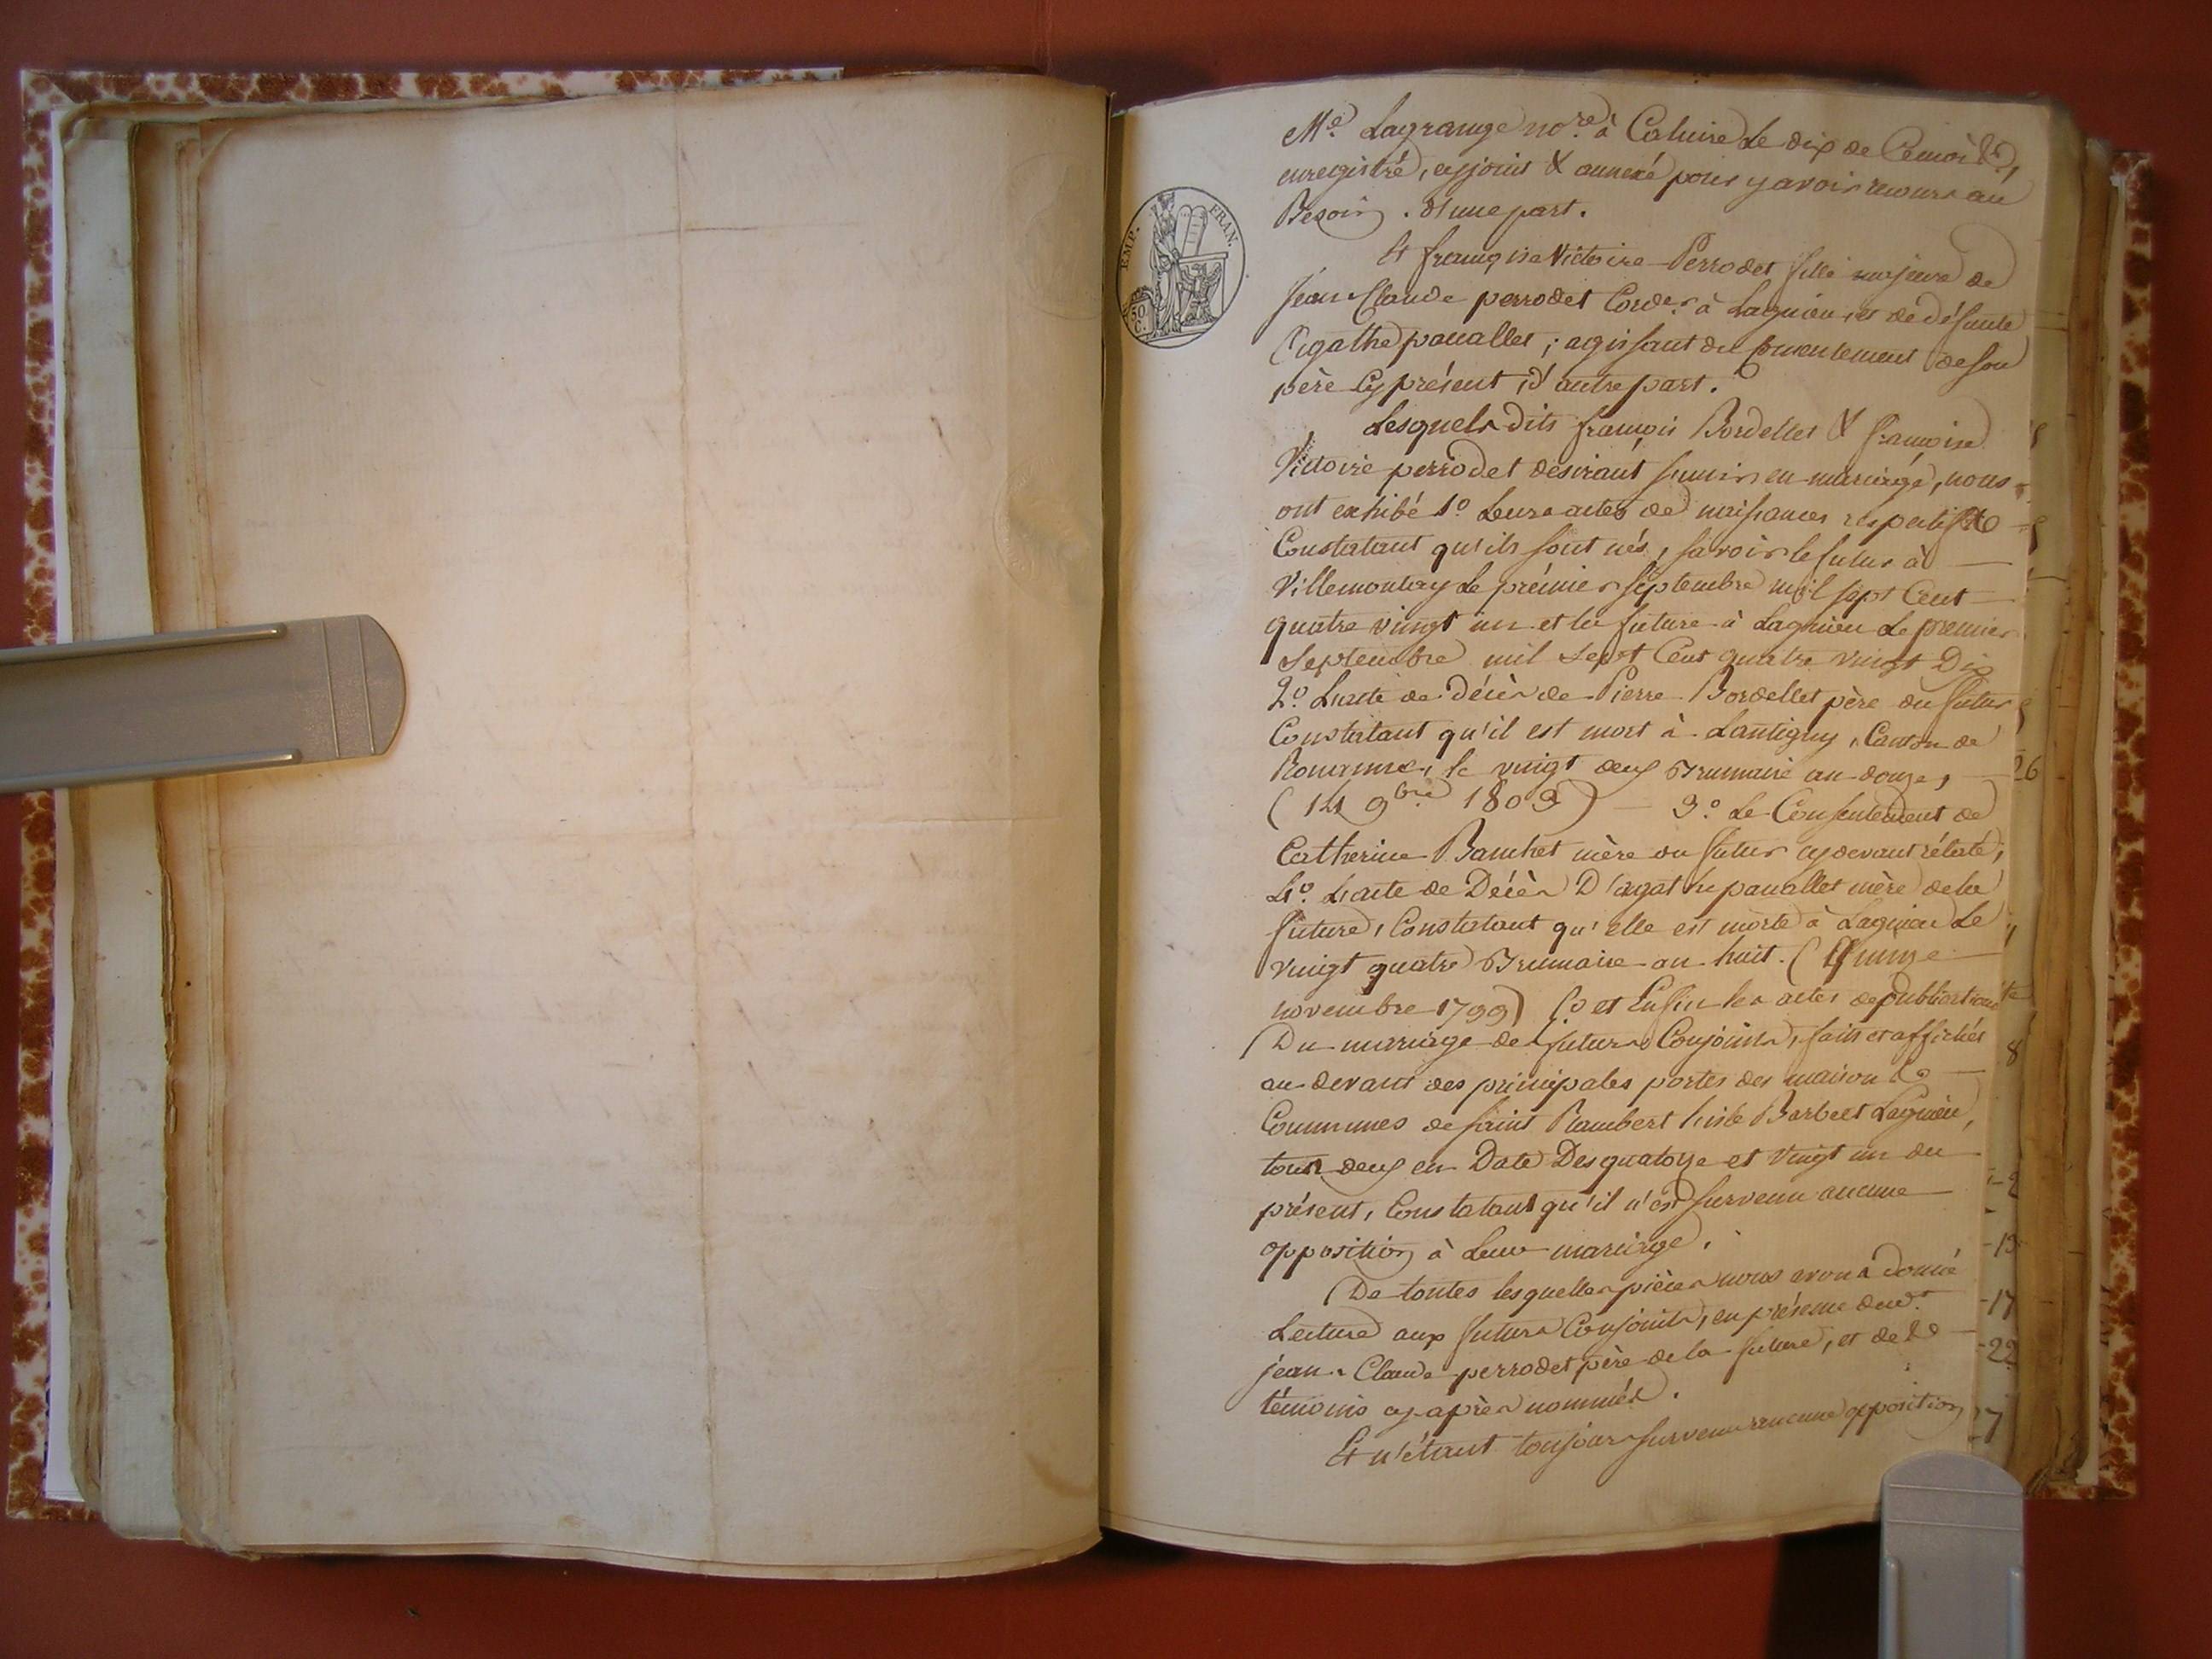 Me. Lagrange nore. à Caluire le dix de Ce mois,
enregistré, cyjoint & annexé pour y avoir recours au
Besoin. d'une part.
EMP. FRAN.
50 C.
Et françoise Victoire Perrodet fille majeure de
Jean Claude perrodet Corder. à Lagnieu, et de défunte
agathe pauallet; agissant du consentement de son
père Cy présent, d'autre part.
Lesquels dits françois Bordellet & françoise
Victoire perrodet désirant s'unir en mariage, nous
ont exhibé 1o. Leurs actes de naissances respectifs
Constatant qu'ils sont nés, savoir le futur à
Villemontay le prémier septembre mil sept Cent
quatre vingt un et la future à Lagnieu le premier
Septembre mil sept Cent quatre vingt Dix
2o. L'acte de décès de Pierre Bordellet père du futur
Constatant qu'il est mort à Lantigny, Canton de
Romanne, le vingt deux Brumaire an douze,
26
(14 9bre. 1803) 3o. Le Consentement de
Catherine Banchet mère du futur cydevant rélaté,
4o. L'acte de Décès D'agathe pauallet mère de la
future, Constatant qu'elle est morte à Lagnieu le
vingt quatre Brumaire an huit. (Quinze
novembre 1799) 5o et Enfin les actes de publications
Du mariage des futurs Conjoints, faits et affichés
8
au devant des principales portes des maison
Communes de saint Rambert l'isle Barbe et Lagnieu,
tous deux en Date Des quatorze et vingt un du
présent, Constatant qu'il n'est survenu aucune
opposition à leur mariage.
-13
De toutes lesquelles pièces nous avons donné
-17
Lecture aux futurs Conjoints, en présence dudt.
-22
jean Claude perrodet père de la future, et des
témoins cy-après nommés.
Et n'étant toujours survenu aucune opposition
7